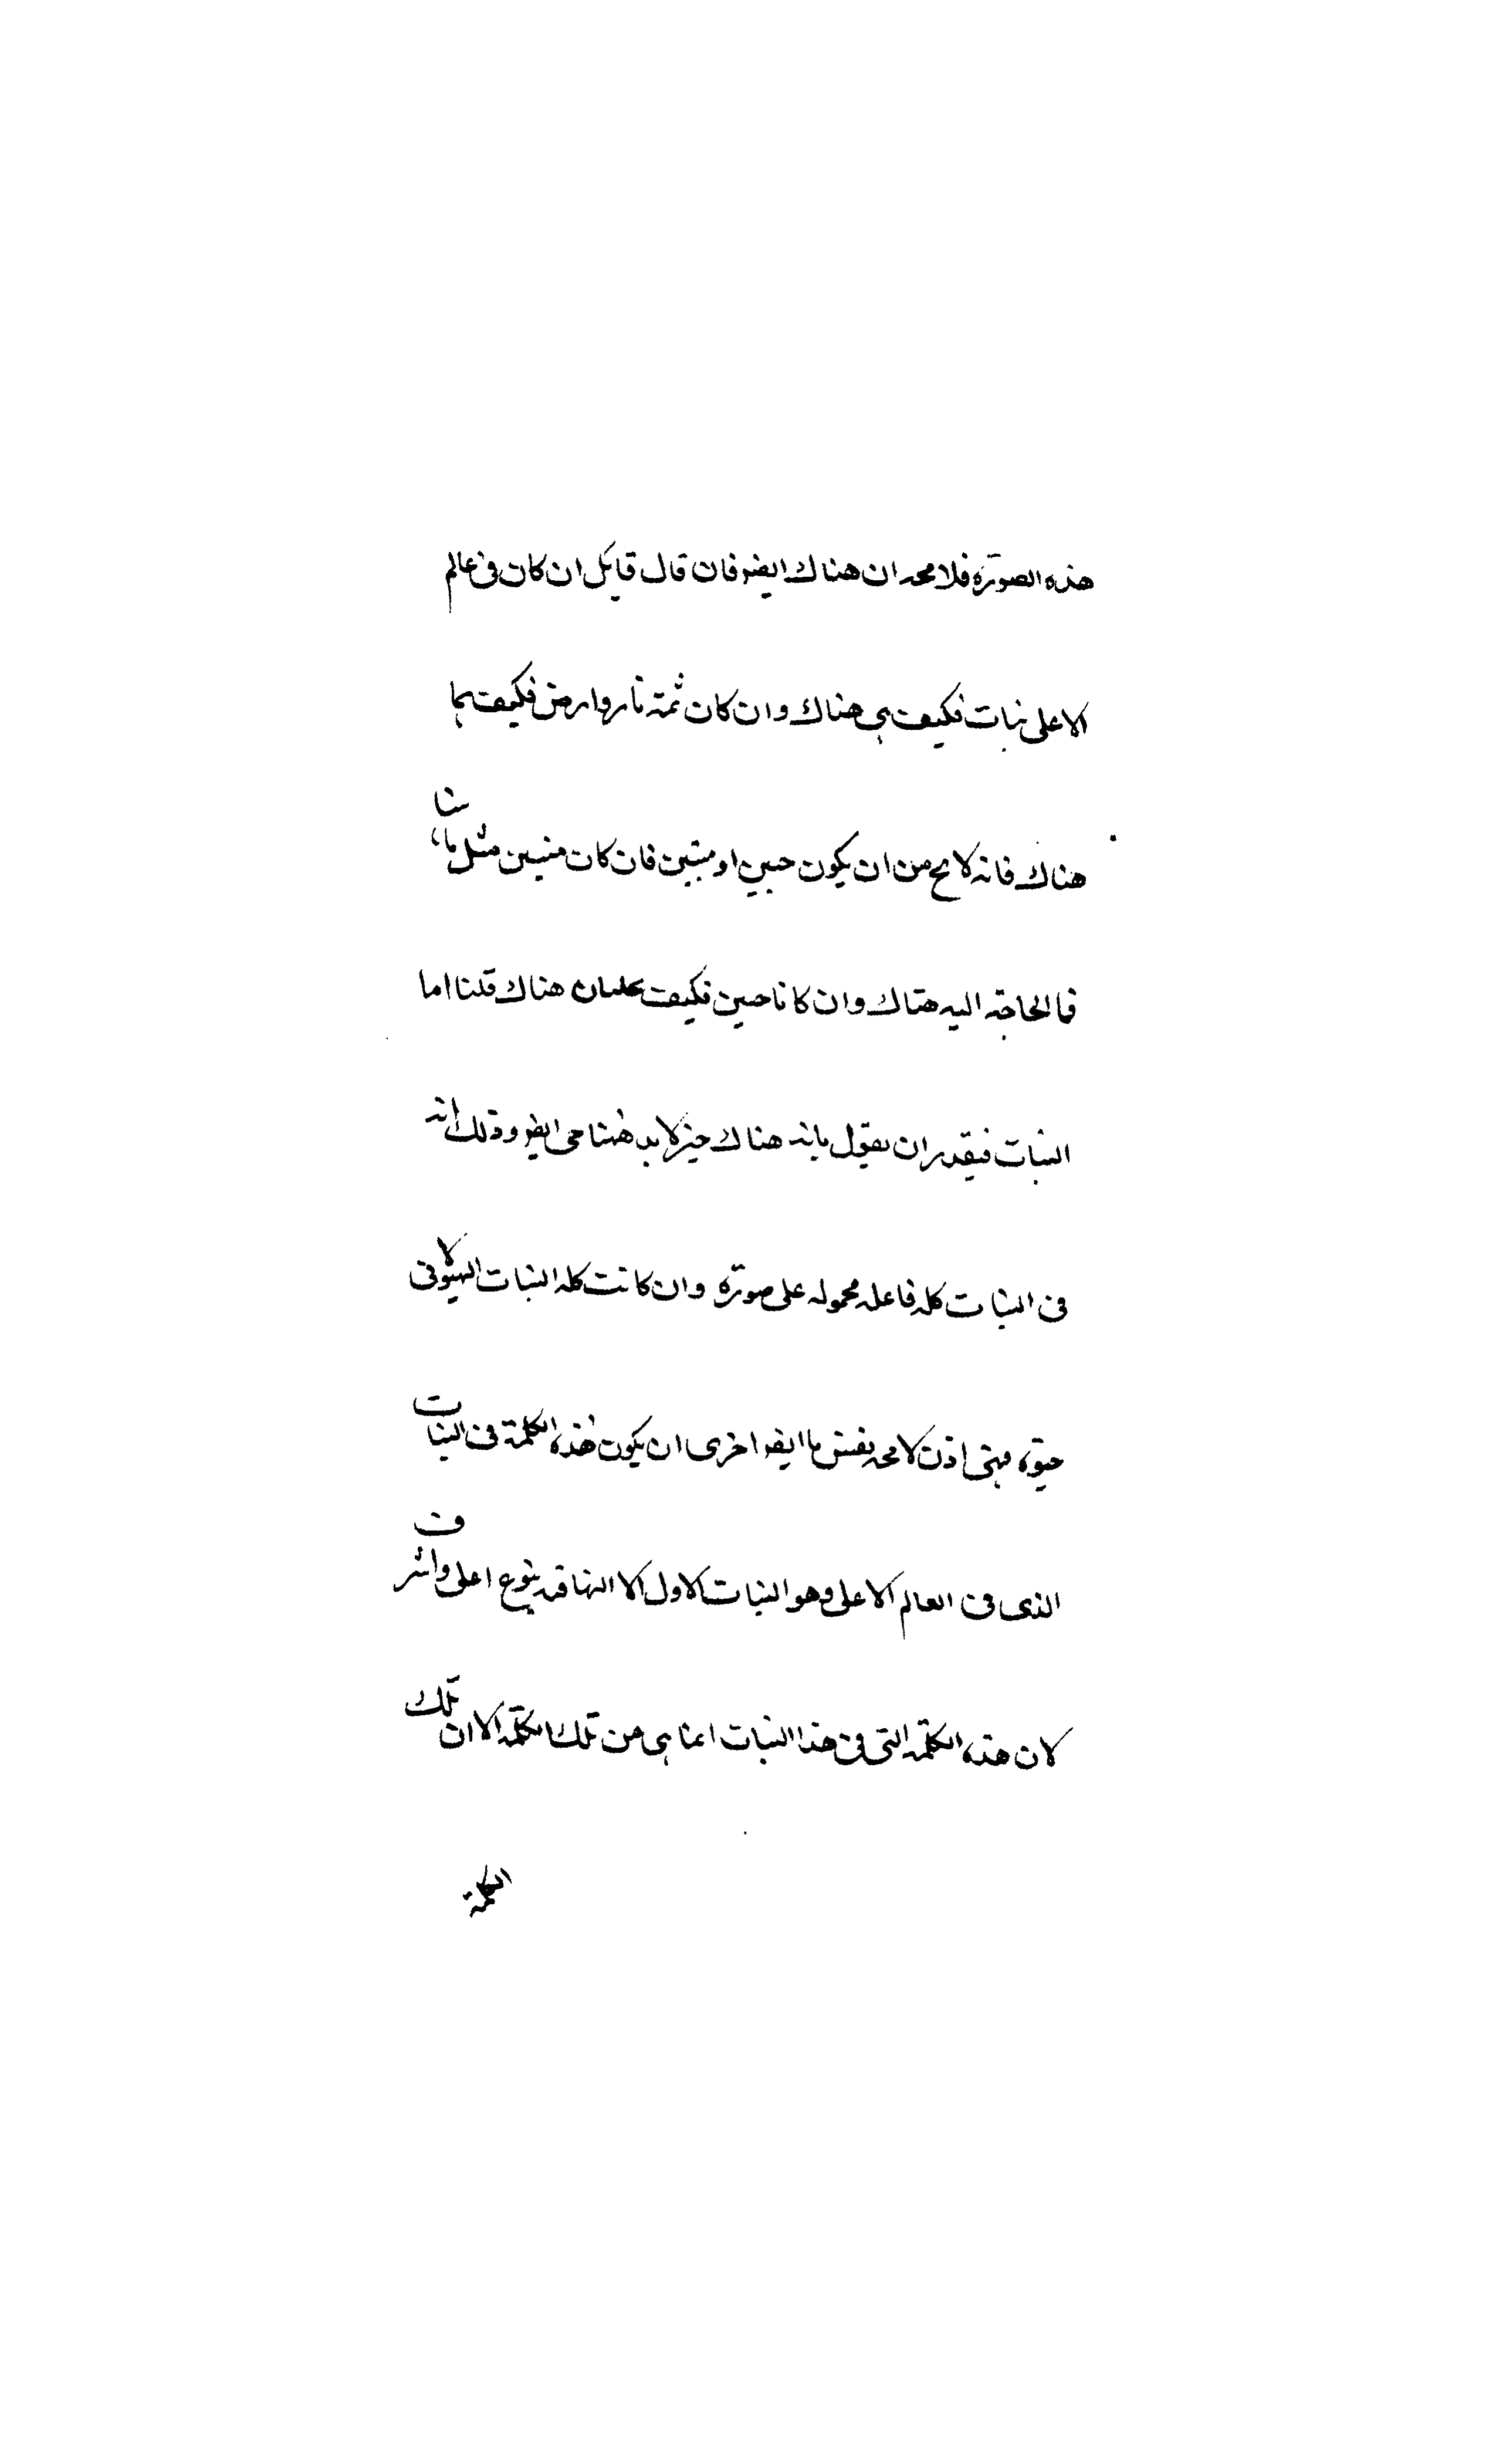 هذه الصورة فلا محه ان هناك ايضو فان قال قايل ان كان فى عالم
الاعلى نبات فكيف هى هناك وان كان ثمة نار وارض فكيف هما
هناك فانه لا يخ من ان يكون حيين او ميتين فان كان ميتين مثل ما هنا
فما الحاجة اليه هناك وان كانا حيين فكيف هناك قلنا اما
النبات فيقدر ان يقول بانه هناك حى ايضو وذلك انه
فى النبات كله فاعله محموله على صورة وان كانت كله النبات الهيولانى
حيوة فهى اذن لا محه نفس ما ايضو اخرى ان يكون هذه الكلمة فى النبات
الذى فى العالم الاعلى وهو النبات الاول الا انها فيه بنوع اعلى واشرف
لان هذه الكلمة التى فى هذا النبات انما هى من تلك الكلمة الا ان تلك
الكلمة